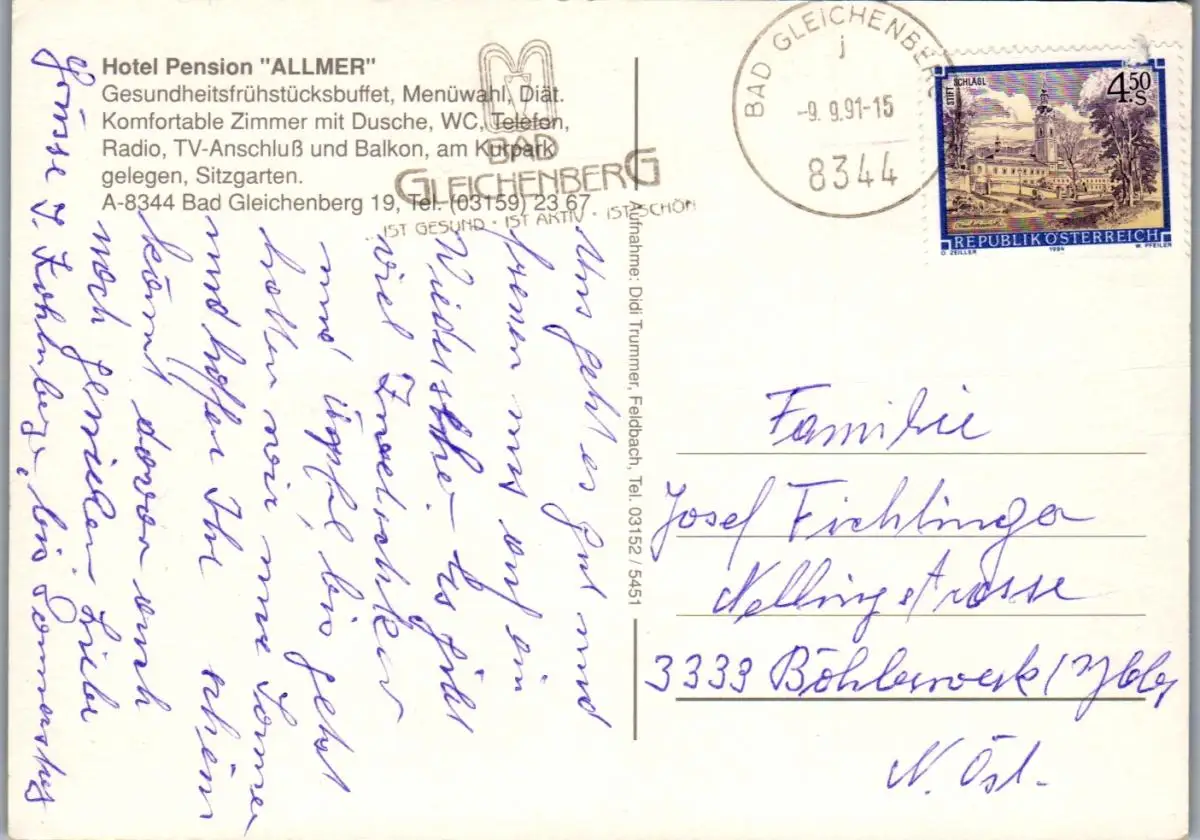 Hotel Pension "ALLMER"
Gesundheitsfrühstücksbuffet, Menüwahl, Diät.
Komfortable Zimmer mit Dusche, WC, Telefon,
Radio, TV-Anschluß und Balkon, am Kurpark
gelegen, Sitzgarten.
A-8344 Bad Gleichenberg 19, Tel. (03159) 23 67
BAD
GLEICHENBERG
IST GESUND · IST AKTIV · IST SCHÖN
BAD GLEICHENBERG
j
-9. 9.91-15
8344
STIFT SCHLÄGL
4.50 S
REPUBLIK ÖSTERREICH
O. ZEILLER 1984 W. PFEILER
Aufnahme: Didi Trummer, Feldbach, Tel. 03152 / 5451
Uns geht es gut und
freuen uns auf ein
Wiedersehen. Es gibt
viel Zwetschken
und Äpfel, bis jetzt
hatten wir nur Sonne
und hoffen Ihr
könnt davon auch
noch genießen. Liebe
Grüsse J. bis Donnerstag
Familie
Josef Fichlinger
Nellingstrasse
3333 Böhlerwerk / Ybbs
N. Öst.